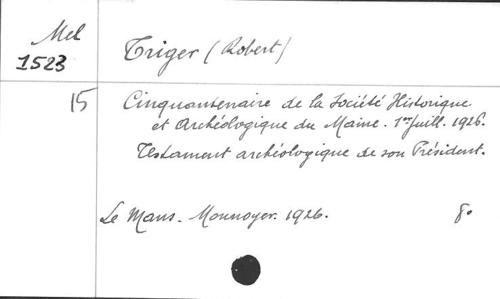 Mel
1523
Triger (Robert)
15
Cinquantenaire de la Société Historique
et Archéologique du Maine. 1er Juill. 1926.
Testament archéologique de son Président.
Le Mans. Monnoyer. 1926.
8°